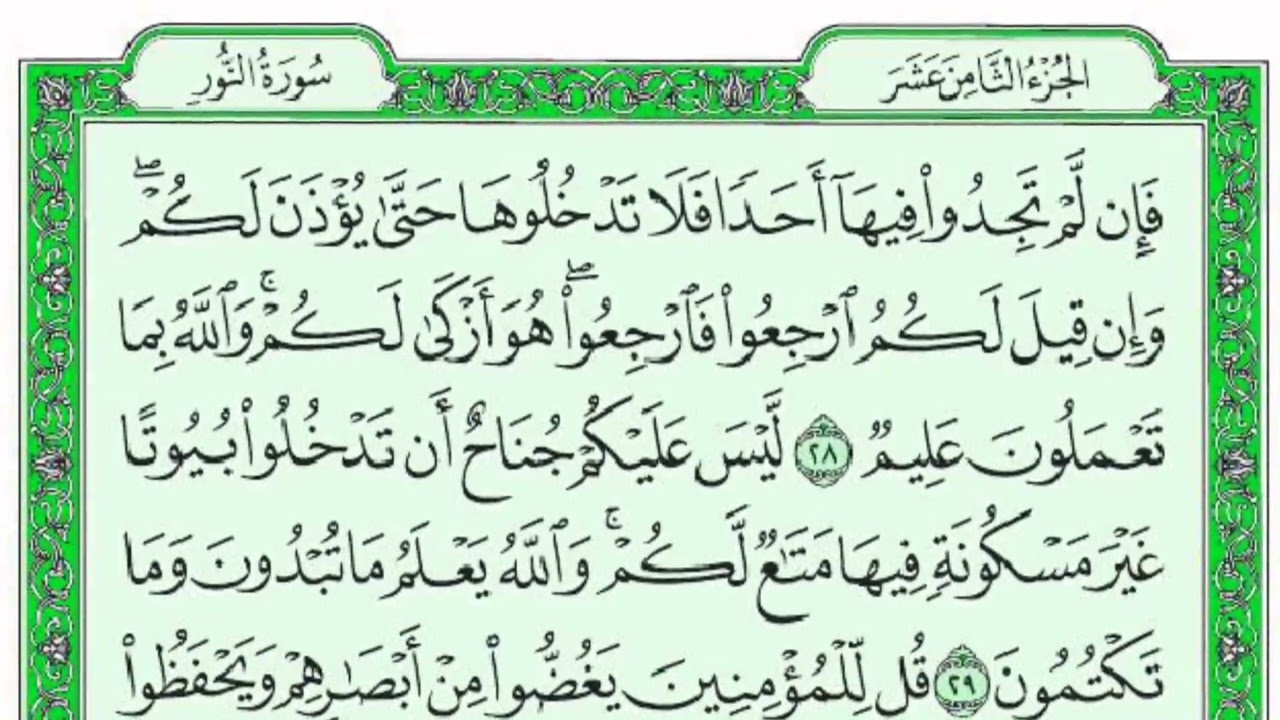 الجُزْءُ الثَّامِنَ عَشَرَ
سُورَةُ النُّورِ
فَإِن لَّمْ تَجِدُوا۟ فِيهَآ أَحَدًا فَلَا تَدْخُلُوهَا حَتَّىٰ يُؤْذَنَ لَكُمْ ۖ
وَإِن قِيلَ لَكُمُ ٱرْجِعُوا۟ فَٱرْجِعُوا۟ ۖ هُوَ أَزْكَىٰ لَكُمْ ۚ وَٱللَّهُ بِمَا
تَعْمَلُونَ عَلِيمٌ ٢٨ لَّيْسَ عَلَيْكُمْ جُنَاحٌ أَن تَدْخُلُوا۟ بُيُوتًا
غَيْرَ مَسْكُونَةٍ فِيهَا مَتَـٰعٌ لَّكُمْ ۚ وَٱللَّهُ يَعْلَمُ مَا تُبْدُونَ وَمَا
تَكْتُمُونَ ٢٩ قُل لِّلْمُؤْمِنِينَ يَغُضُّوا۟ مِنْ أَبْصَـٰرِهِمْ وَيَحْفَظُوا۟